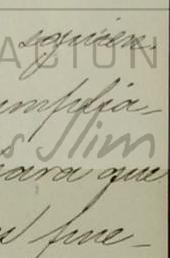 quien.
ACION
mplia-
s Slim
para que
fue-